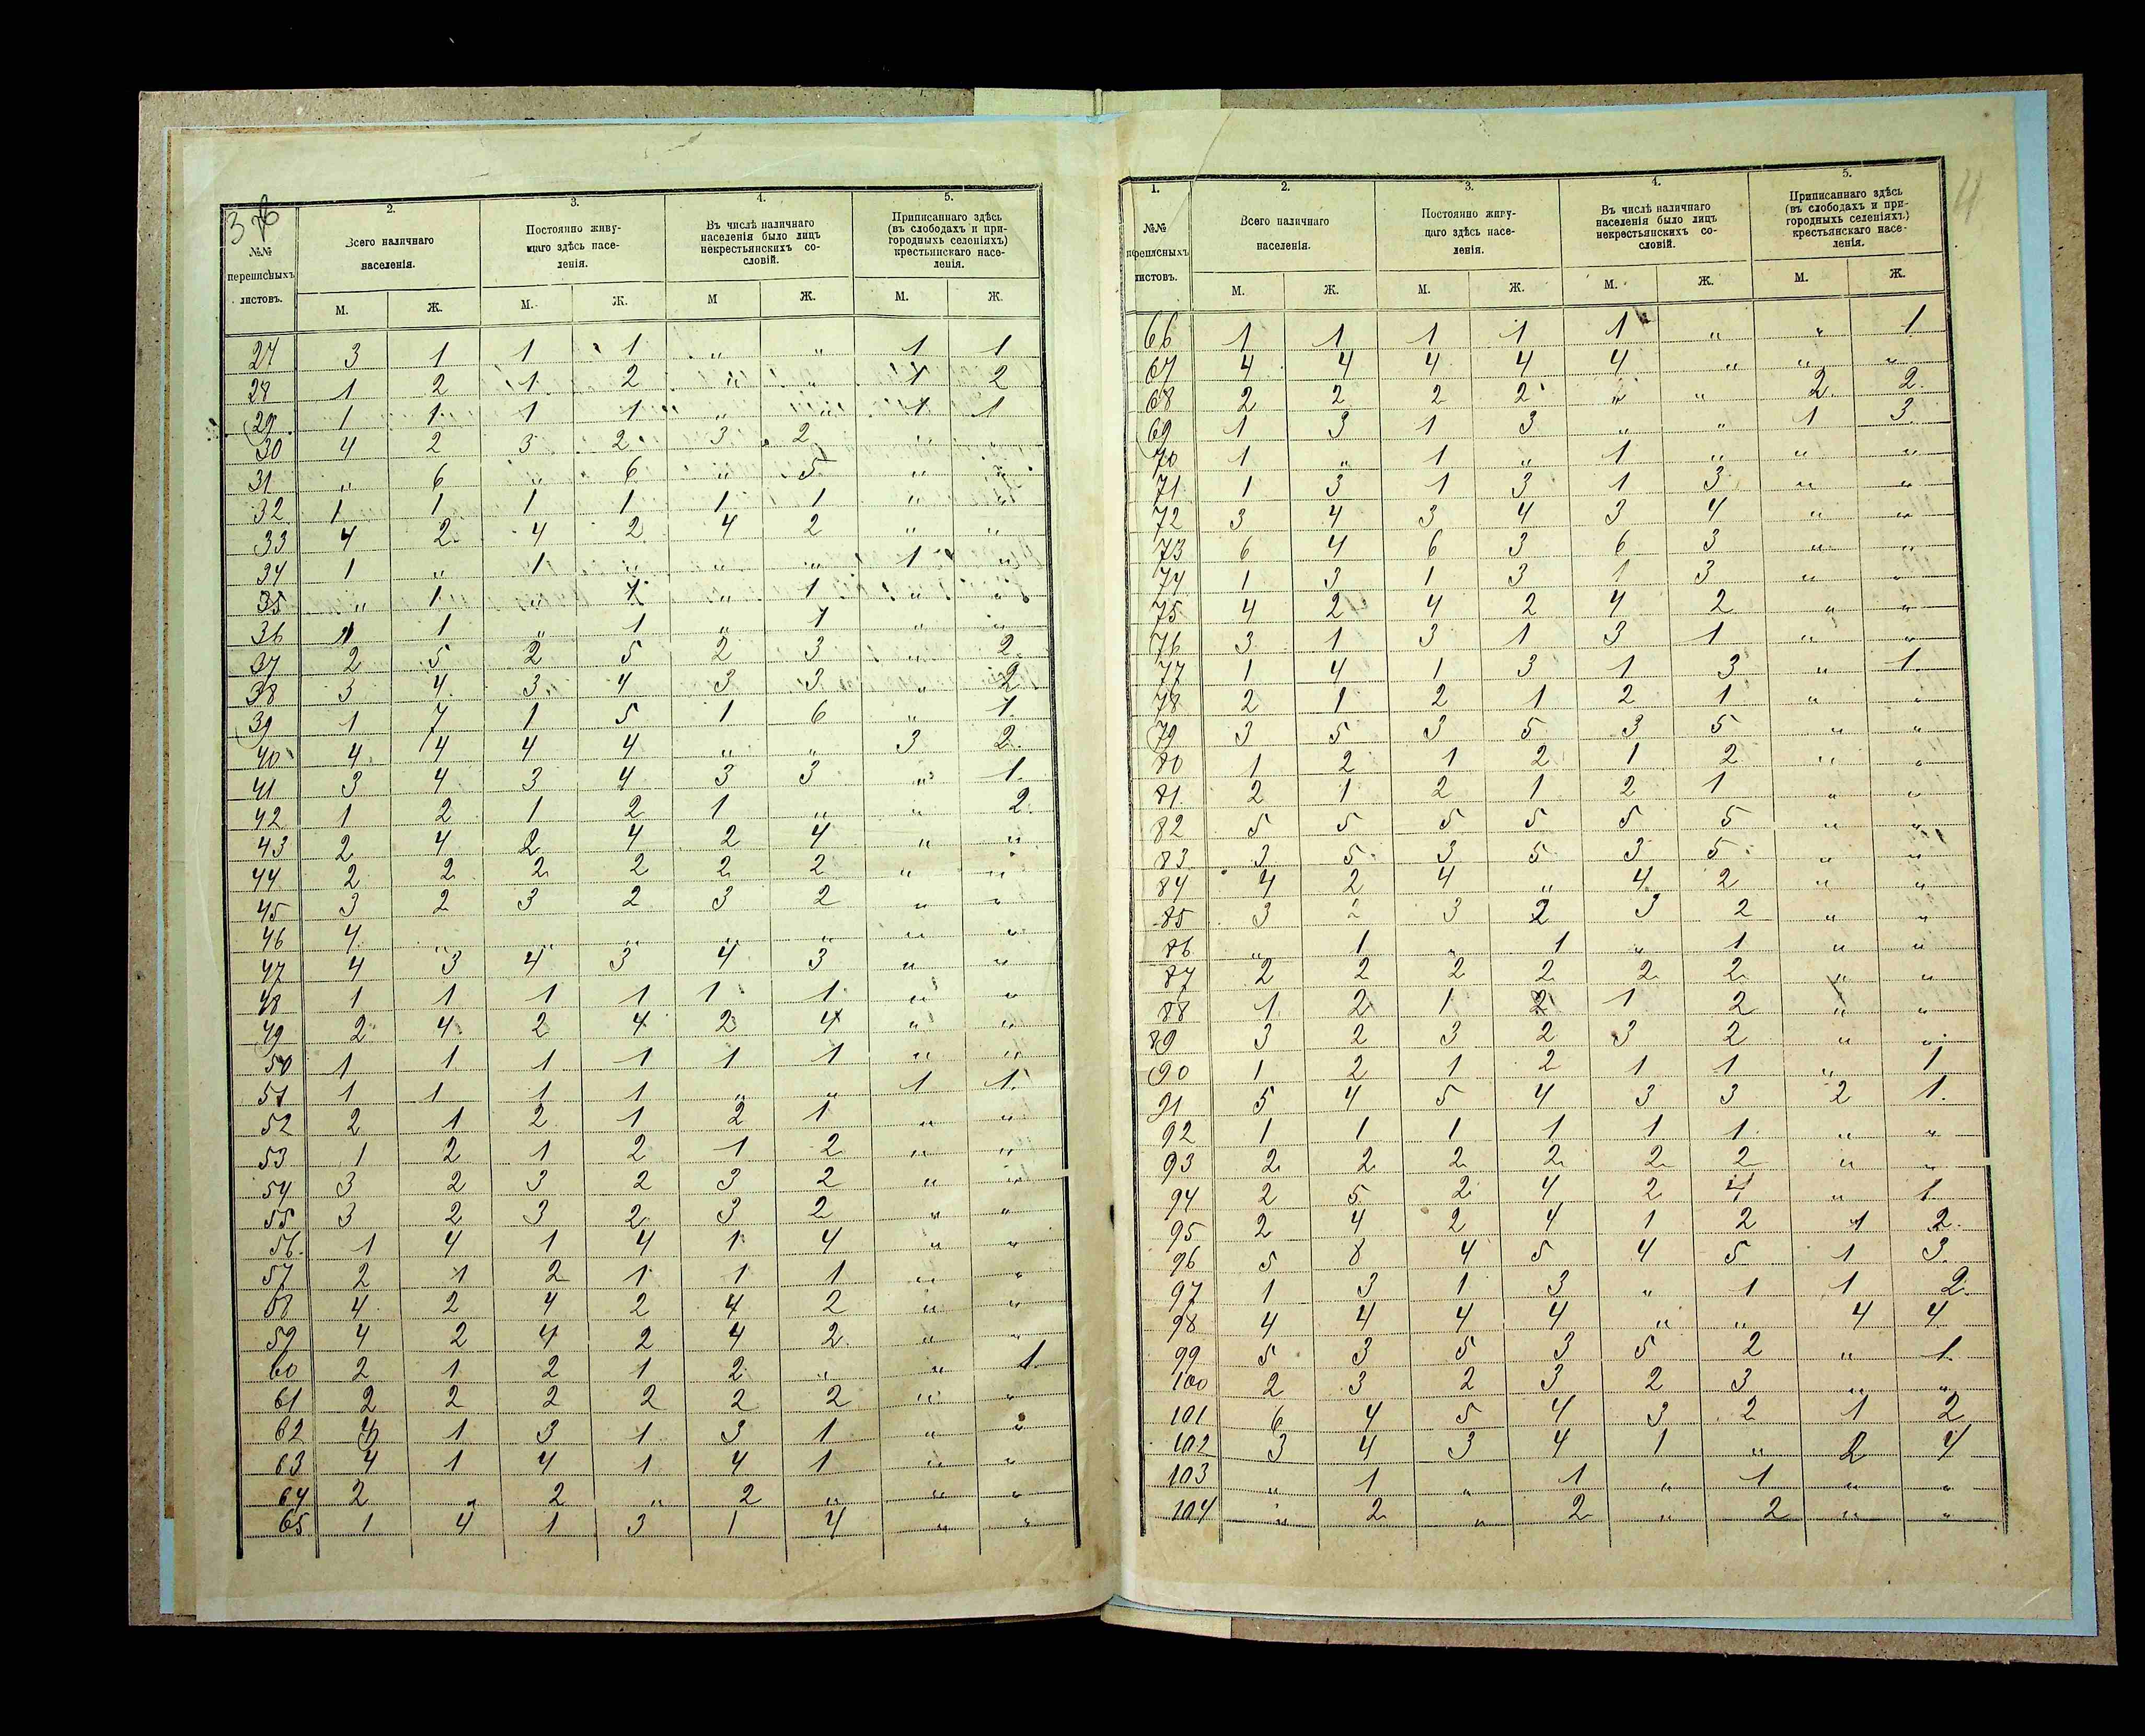 3 об
2. 3. 4. 5.
№№ переписныхъ листовъ. Всего наличнаго населенія. Постоянно живущаго здѣсь населенія. Въ числѣ наличнаго населенія было лицъ некрестьянскихъ сословій. Приписаннаго здѣсь (въ слободахъ и пригородныхъ селеніяхъ) крестьянскаго населенія.
М. Ж. М. Ж. М Ж. М. Ж.
27 3 1 1 1 „ „ 1 1
28 1 2 1 2 „ „ 1 2
29 1 1 1 1 „ „ 1 1
30 4 2 3 2 3 2 „ „
31 „ 6 „ 6 „ 5 „ „
32 1 1 1 1 1 1 „ „
33 4 2 4 2 4 2 „ „
34 1 „ 1 „ „ „ 1 „
35 „ 1 „ 1 „ 1 „ „
36 1 1 „ 1 „ 1 „ „
37 2 5 2 5 2 3 „ 2
38 3 4 3 4 3 3 „ 2
39 1 7 1 5 1 6 „ 1
40 4 4 4 4 „ „ 3 2
41 3 4 3 4 3 3 „ 1
42 1 2 1 2 1 „ „ 2
43 2 4 2 4 2 4 „ „
44 2 2 2 2 2 2 „ „
45 3 2 3 2 3 2 „ „
46 4 „ „ „ „ „ „ „
47 4 3 4 3 4 3 „ „
48 1 1 1 1 1 1 „ „
49 2 4 2 4 2 4 „ „
50 1 1 1 1 1 1 „ „
51 1 1 1 1 „ „ 1 1
52 2 1 2 1 2 1 „ „
53 1 2 1 2 1 2 „ „
54 3 2 3 2 3 2 „ „
55 3 2 3 2 3 2 „ „
56 1 4 1 4 1 4 „ „
57 2 1 2 1 1 1 „ „
58 4 2 4 2 4 2 „ „
59 4 2 4 2 4 2 „ „
60 2 1 2 1 2 „ „ 1
61 2 2 2 2 2 2 „ „
62 4 1 3 1 3 1 „ „
63 4 1 4 1 4 1 „ „
64 2 „ 2 „ 2 „ „ „
65 1 4 1 3 1 4 „ „
4
1. 2. 3. 4. 5.
№№ переписныхъ листовъ. Всего наличнаго населенія. Постоянно живущаго здѣсь населенія. Въ числѣ наличнаго населенія было лицъ некрестьянскихъ сословій. Приписаннаго здѣсь (въ слободахъ и пригородныхъ селеніяхъ) крестьянскаго населенія.
М. Ж. М. Ж. М. Ж. М. Ж.
66 1 1 1 1 1 „ „ 1
67 4 4 4 4 4 „ „ „
68 2 2 2 2 „ „ 2 2
69 1 3 1 3 „ „ 1 3
70 1 „ 1 „ 1 „ „ „
71 1 3 1 3 1 3 „ „
72 3 4 3 4 3 4 „ „
73 6 4 6 3 6 3 „ „
74 1 3 1 3 1 3 „ „
75 4 2 4 2 4 2 „ „
76 3 1 3 1 3 1 „ „
77 1 4 1 3 1 3 „ 1
78 2 1 2 1 2 1 „ „
79 3 5 3 5 3 5 „ „
80 1 2 1 2 1 2 „ „
81 2 1 2 1 2 1 „ „
82 5 5 5 5 5 5 „ „
83 3 5 3 5 3 5 „ „
84 4 2 4 „ 4 2 „ „
85 3 2 3 2 3 2 „ „
86 „ 1 „ 1 „ 1 „ „
87 2 2 2 2 2 2 „ „
88 1 2 1 2 1 2 „ „
89 3 2 3 2 3 2 „ „
90 1 2 1 2 1 1 „ 1
91 5 4 5 4 3 3 2 1
92 1 1 1 1 1 1 „ „
93 2 2 2 2 2 2 „ „
94 2 5 2 4 2 4 „ 1
95 2 4 2 4 1 2 1 2
96 5 8 4 5 4 5 1 3
97 1 3 1 3 „ 1 1 2
98 4 4 4 4 „ „ 4 4
99 5 3 5 3 5 2 „ 1
100 2 3 2 3 2 3 „ „
101 6 4 5 4 3 2 1 2
102 3 4 3 4 1 „ 2 4
103 „ 1 „ 1 „ 1 „ „
104 „ 2 „ 2 „ 2 „ „